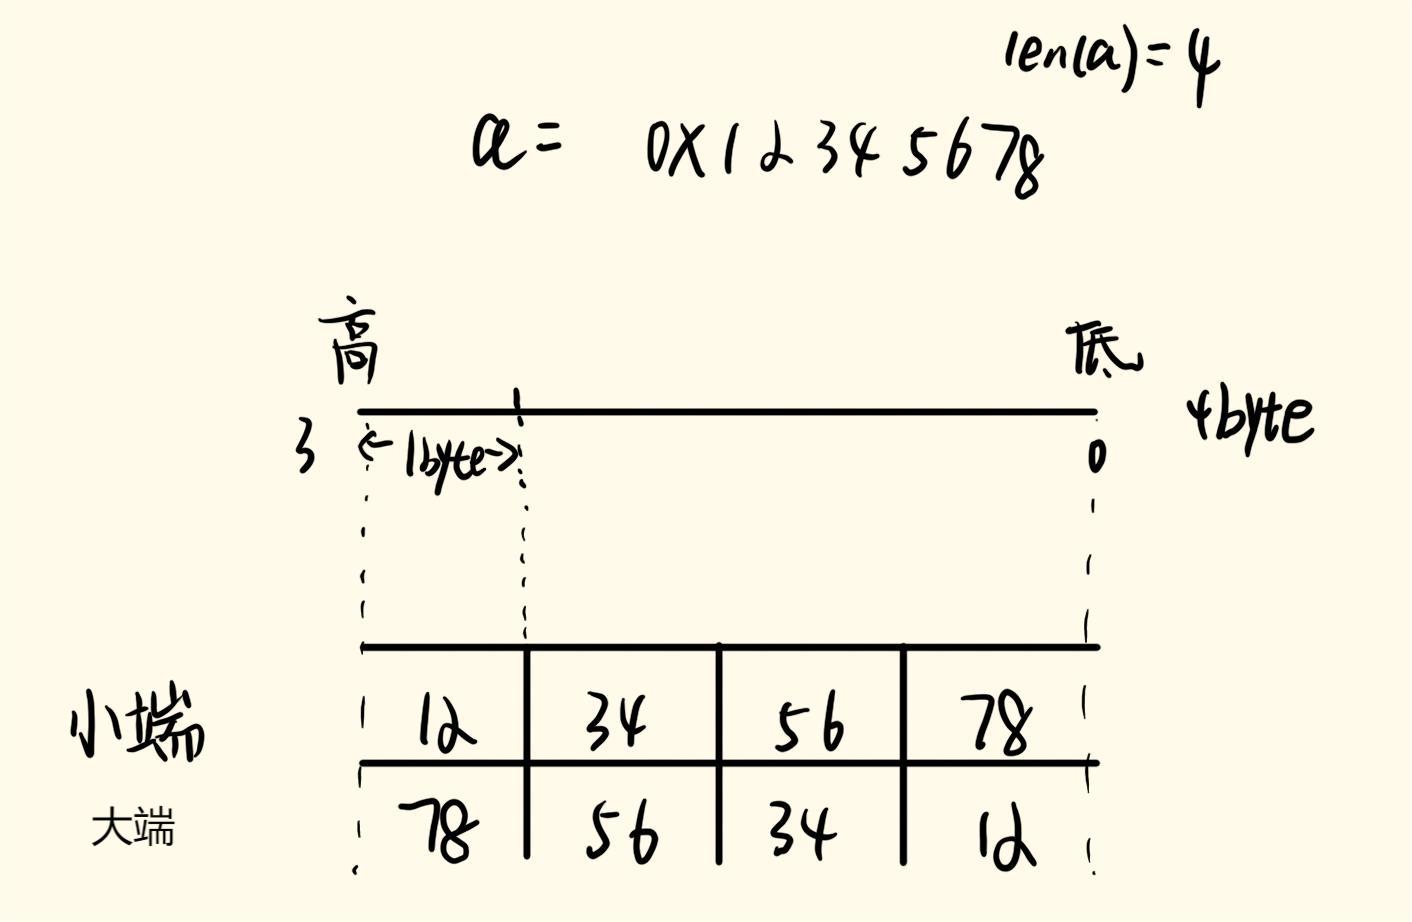 len(a)=4
a= 0X12345678
高 低
3 1byte 0 4byte
小端 12 34 56 78
大端 78 56 34 12